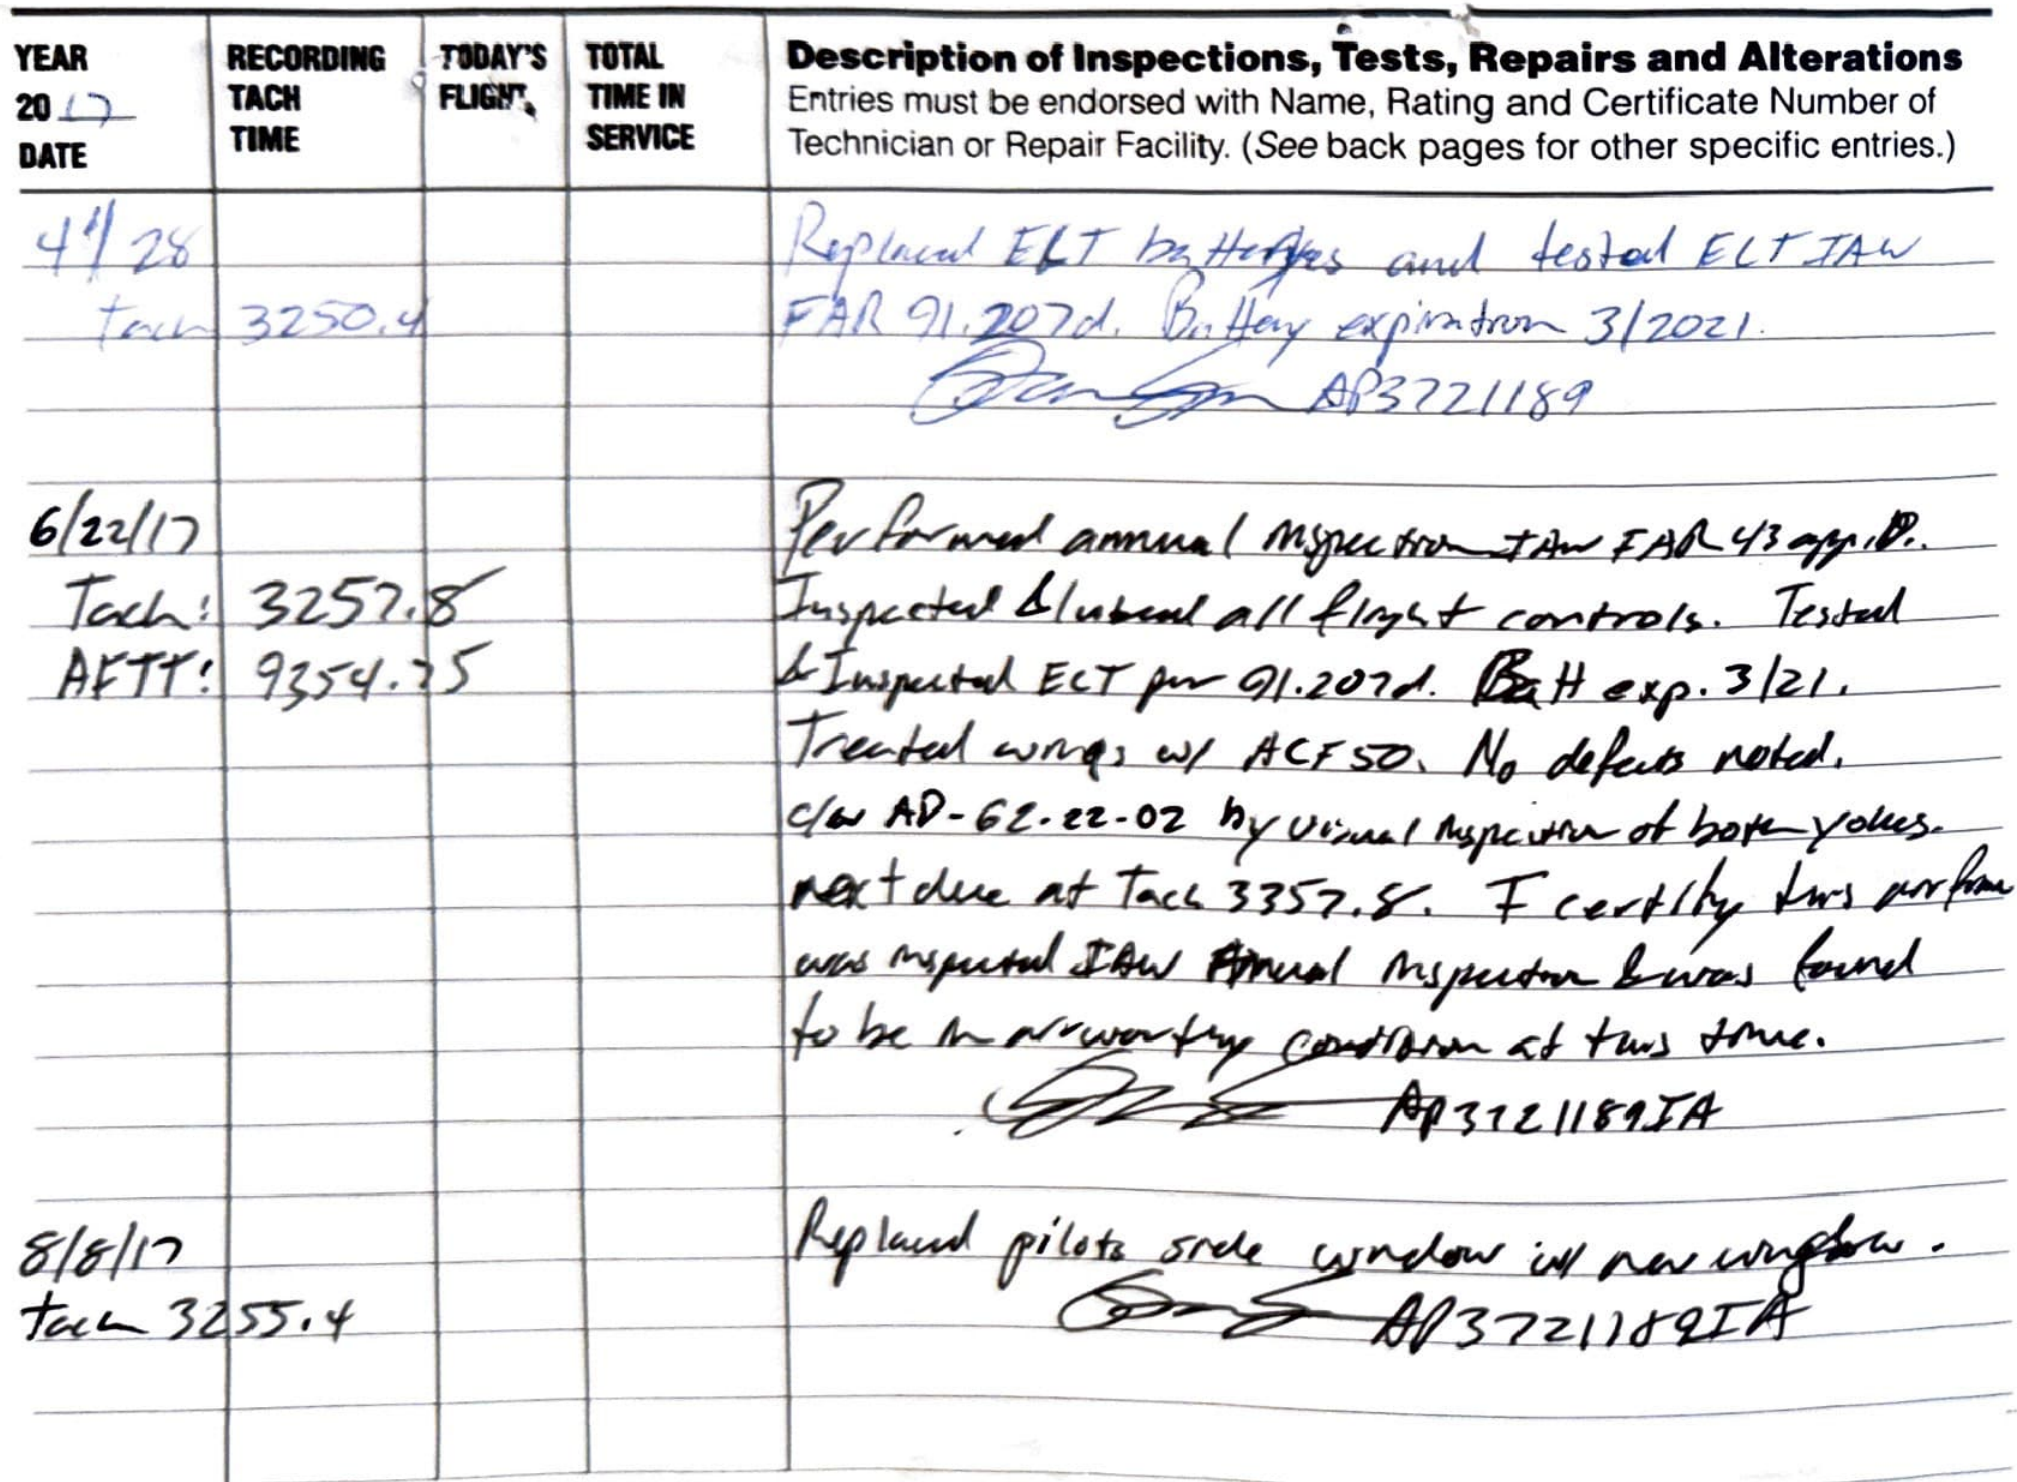 YEAR 2017 DATE
RECORDING TACH TIME
TODAY'S FLIGHT
TOTAL TIME IN SERVICE
Description of Inspections, Tests, Repairs and Alterations
Entries must be endorsed with Name, Rating and Certificate Number of
Technician or Repair Facility. (See back pages for other specific entries.)
4/28 Replaced ELT batteries and tested ELT IAW
Tach 3250.4 FAR 91.207d. Battery expiration 3/2021.
AP3721189
6/22/17 Performed annual inspection IAW FAR 43 app. D.
Tach: 3257.8 Inspected & lubed all flight controls. Tested
AFTT: 9354.75 & Inspected ELT per 91.207d. Batt exp. 3/21.
Treated wings w/ ACF50. No defects noted.
c/w AD-62-22-02 by visual inspection of both yokes.
next due at Tach 3357.8. I certify this airframe
was inspected IAW Annual Inspection & was found
to be in airworthy condition at this time.
AP3721189IA
8/8/17 Replaced pilots side window w/ new window.
Tach 3255.4 AP3721189IA